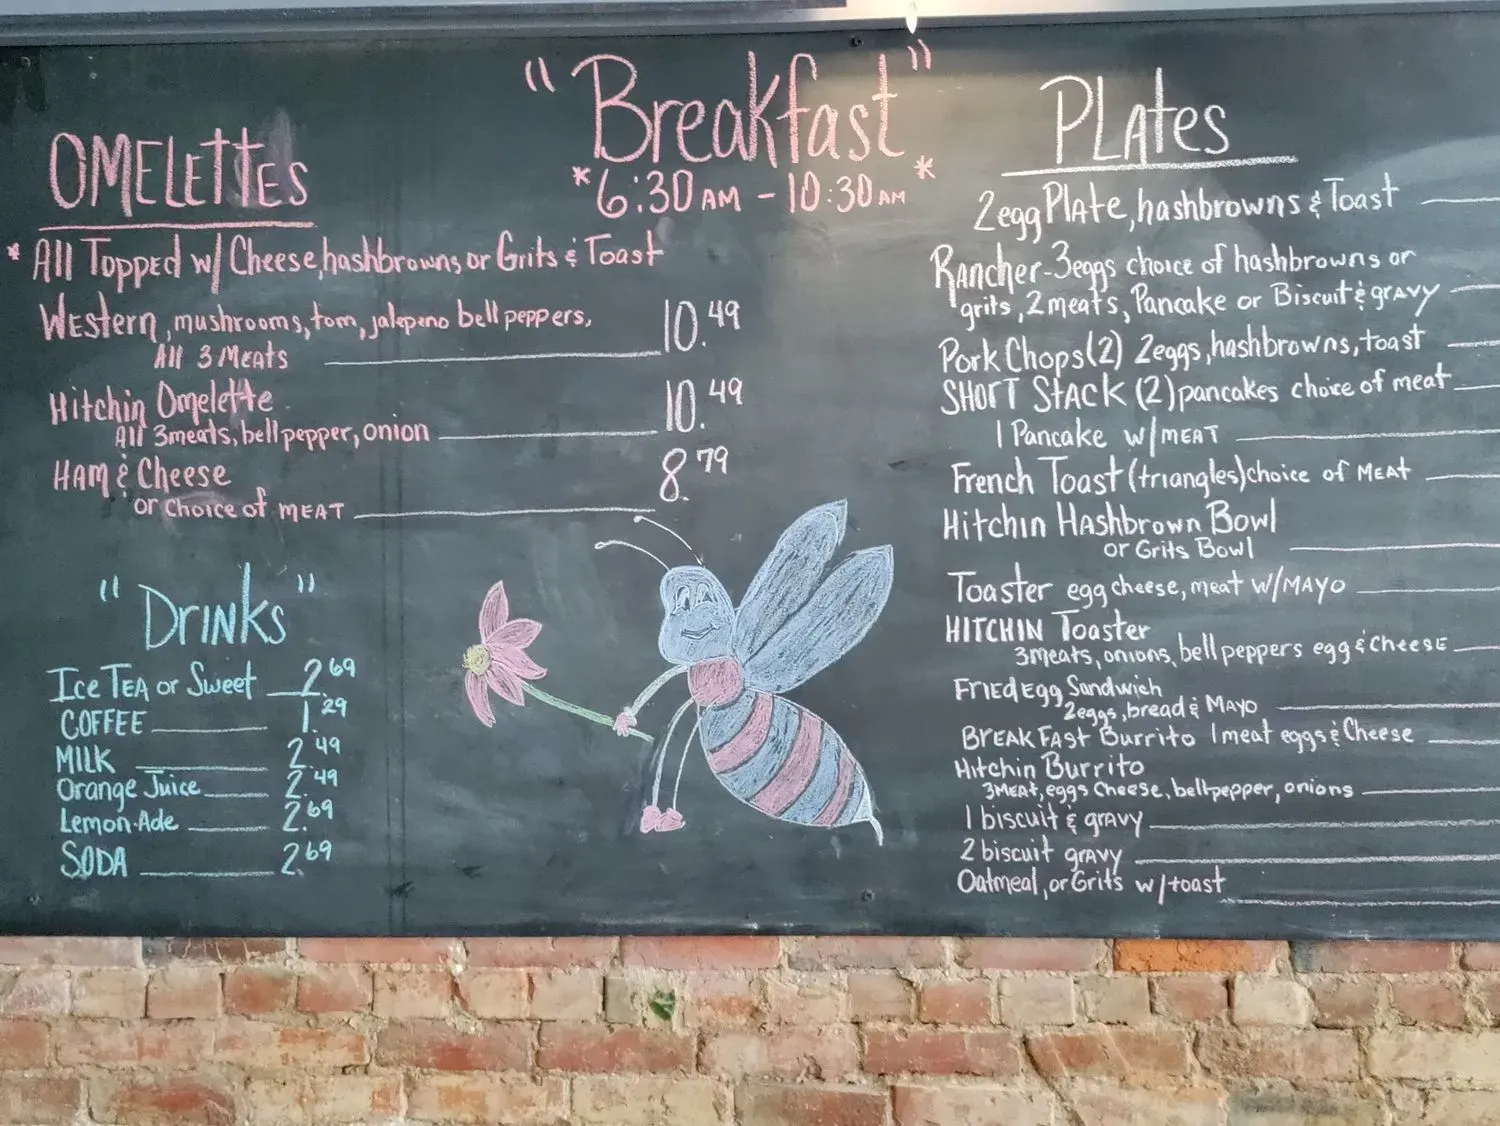 "Breakfast"
*6:30AM - 10:30AM*
OMELETTES
*All Topped w/ Cheese, hashbrowns or Grits & Toast
Western, mushrooms, tom, jalepeno bell peppers, 10.49
All 3 Meats
Hitchin Omelette 10.49
All 3meats, bell pepper, onion
HAM & Cheese 8.79
or choice of MEAT
"Drinks"
Ice TEA or Sweet 2.69
COFFEE 1.29
MILK 2.49
Orange Juice 2.49
Lemon-Ade 2.69
SODA 2.69
PLAtes
2egg PLAte, hashbrowns & Toast
Rancher-3eggs choice of hashbrowns or
grits, 2 meats, Pancake or Biscuit & gravy
Pork Chops (2) 2eggs, hashbrowns, toast
SHOrT STACK (2) pancakes choice of meat
1 Pancake w/MEAT
French Toast (triangles) choice of MEAt
Hitchin Hashbrown Bowl
or Grits Bowl
Toaster egg cheese, meat w/MAYO
HITCHIN Toaster
3meats, onions, bell peppers egg & Cheese
Fried Egg Sandwich
2eggs, bread & Mayo
BreakFast Burrito 1 meat eggs & Cheese
Hitchin Burrito
3MEAt, eggs Cheese, bell-pepper, onions
1 biscuit & gravy
2 biscuit gravy
Oatmeal, or Grits w/toast